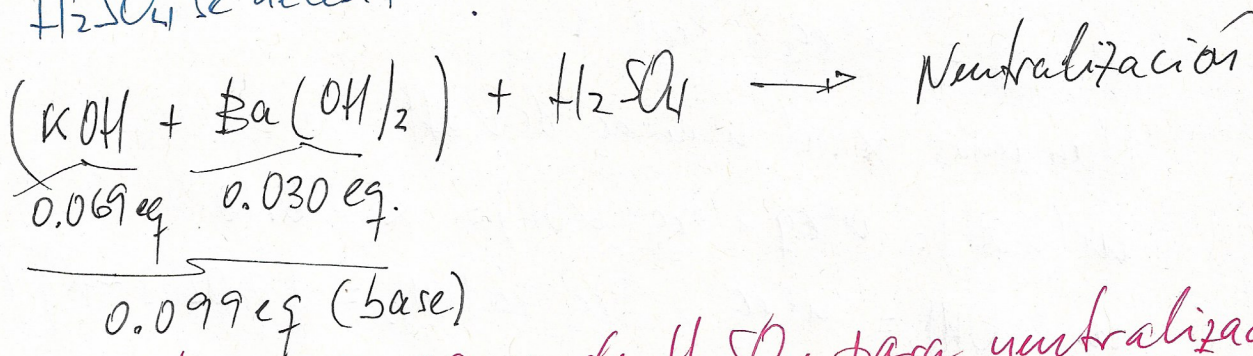 H₂SO₄ se
(KOH + Ba(OH)₂) + H₂SO₄ → Neutralización
0.069 eq 0.030 eq.
0.099 eq (base)
de H₂SO₄ para neutraliza